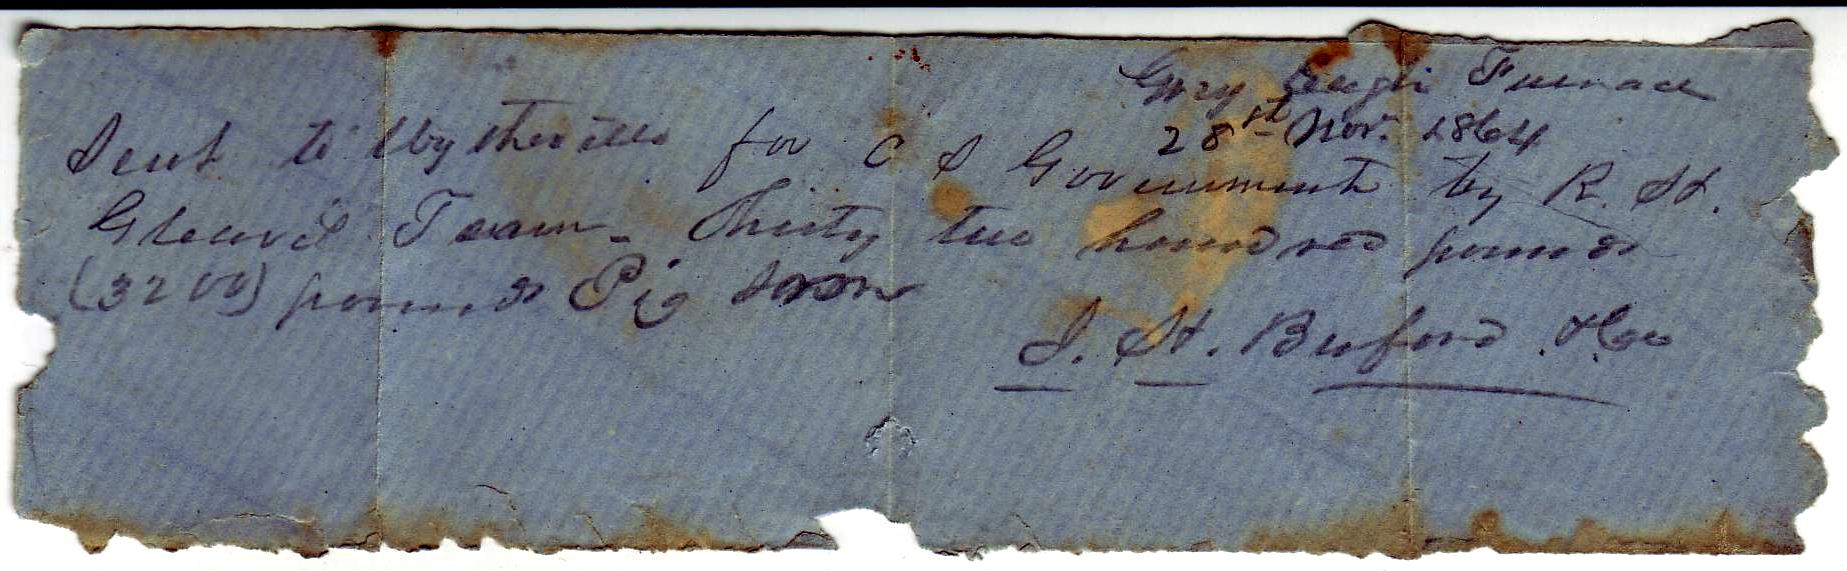 Furnace
28th Nov. 1864
Sent to Wytheville for C S Government by R. H.
Gleaves Team - Thirty two hundred pounds
(3200) pounds Pig Iron
J. H. Buford